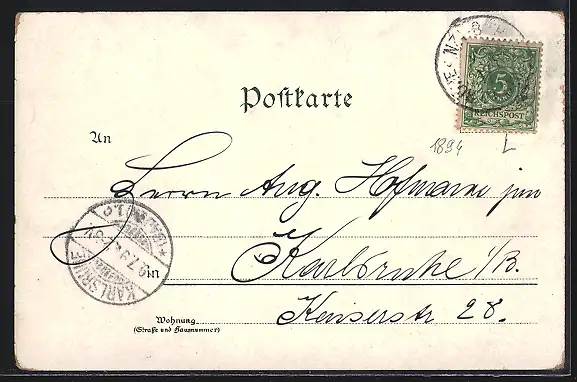 Postkarte
5
REICHSPOST
1894
L
An
Herrn Aug. Hofmann jun
in Karlsruhe i/B.
KARLSRUHE
Wohnung
(Straße und Hausnummer)
Kaiserstr 28.